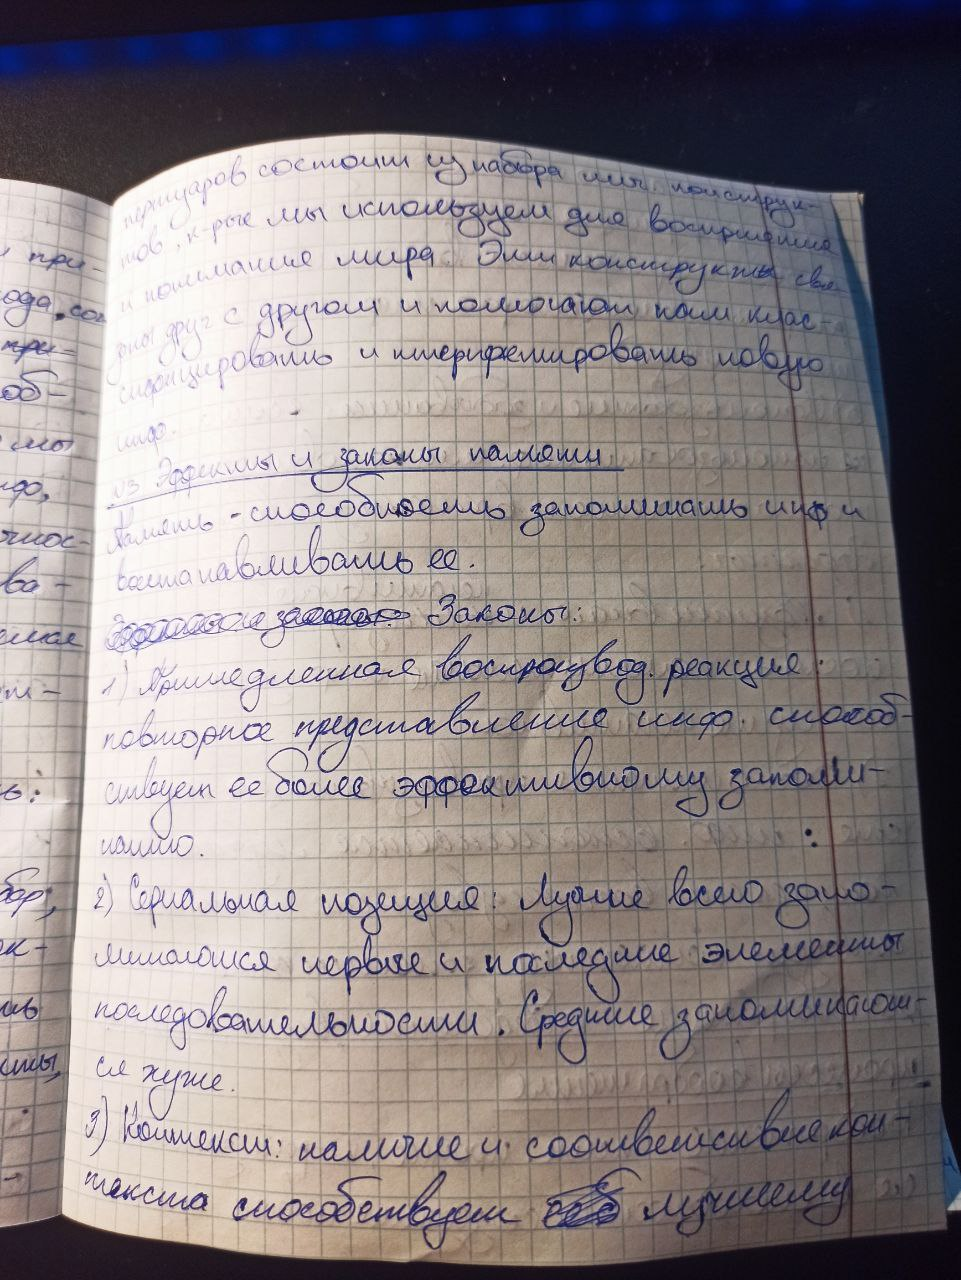 пертуаров состоит из набора лич. конструк-
тов, к-рые мы используем для восприятия
и понимания мира. Эти конструкты свя-
заны друг с другом и помогают нам клас-
сифицировать и интерпретировать новую
инф.
№3 Эффекты и законы памяти
Память - способность запоминать инф и
восстанавливать ее.
Законы:
1) воспроизвод. реакция:
повторное представление инф. способ-
ствует ее более эффективному запоми-
нанию.
2) Сериальная позиция: Лучше всего запо-
минаются первые и последние элементы
последовательности. Средние запоминают-
ся хуже.
3) Контекст: наличие и соответствие кон-
текста способствует лучшему
при-
ода, сог
при-
об-
мы
инфо,
чнос-
ва-
ь:
бор,
ок-